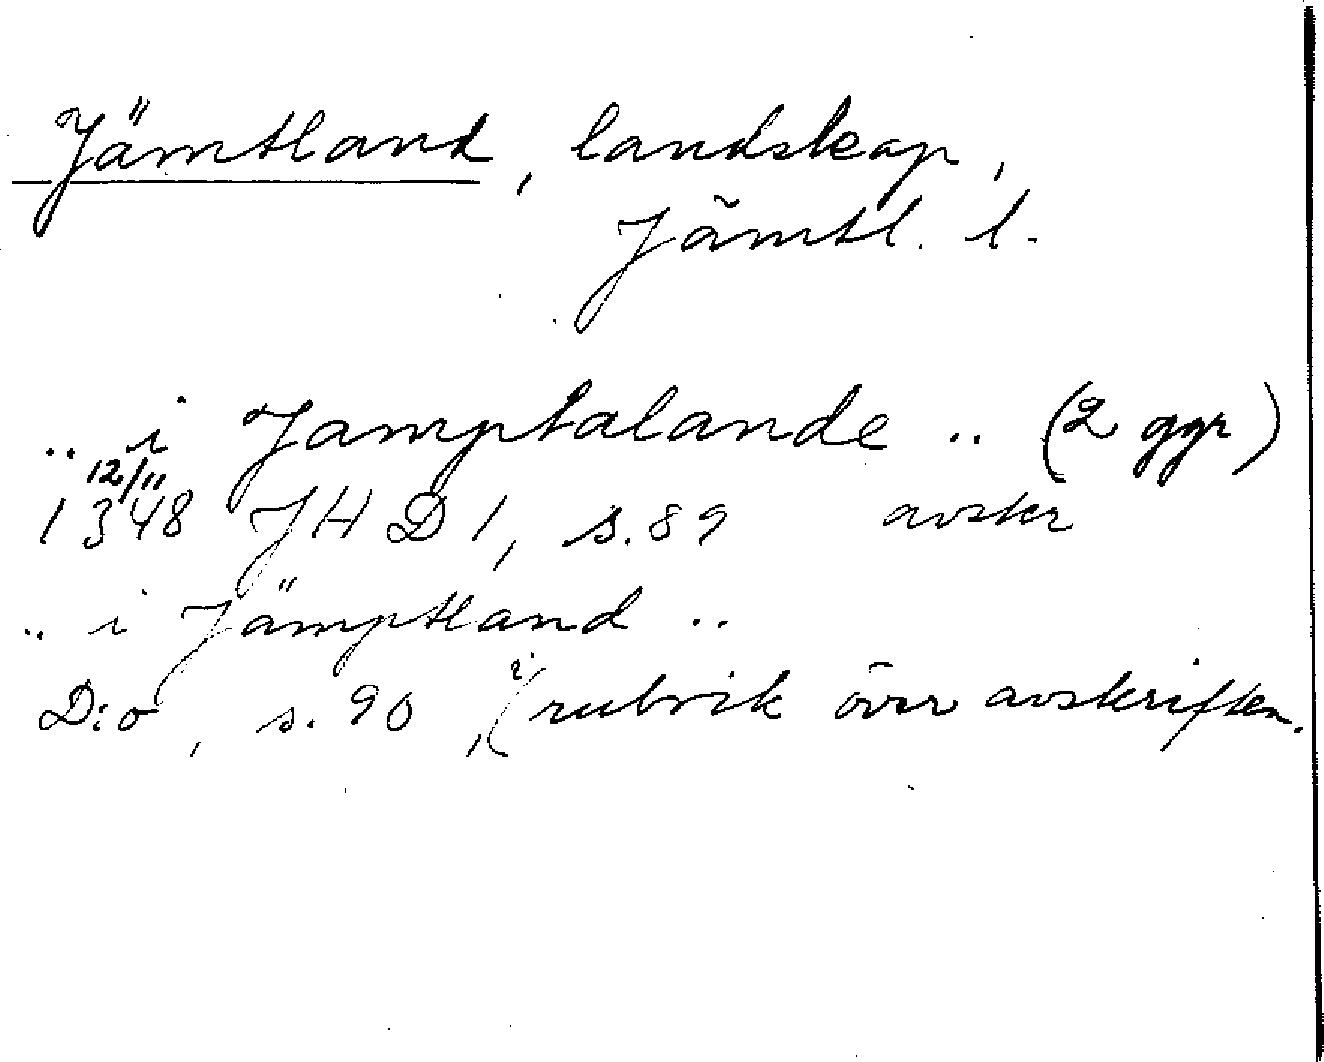 Jämtland, landskap,
Jämtl. l.
.. i Jamptalande .. (2 ggr)
12/11
1348 JHD 1, s. 89 avskr
.. i Jämptland ..
D:o, s. 90, i rubrik över avskriften.